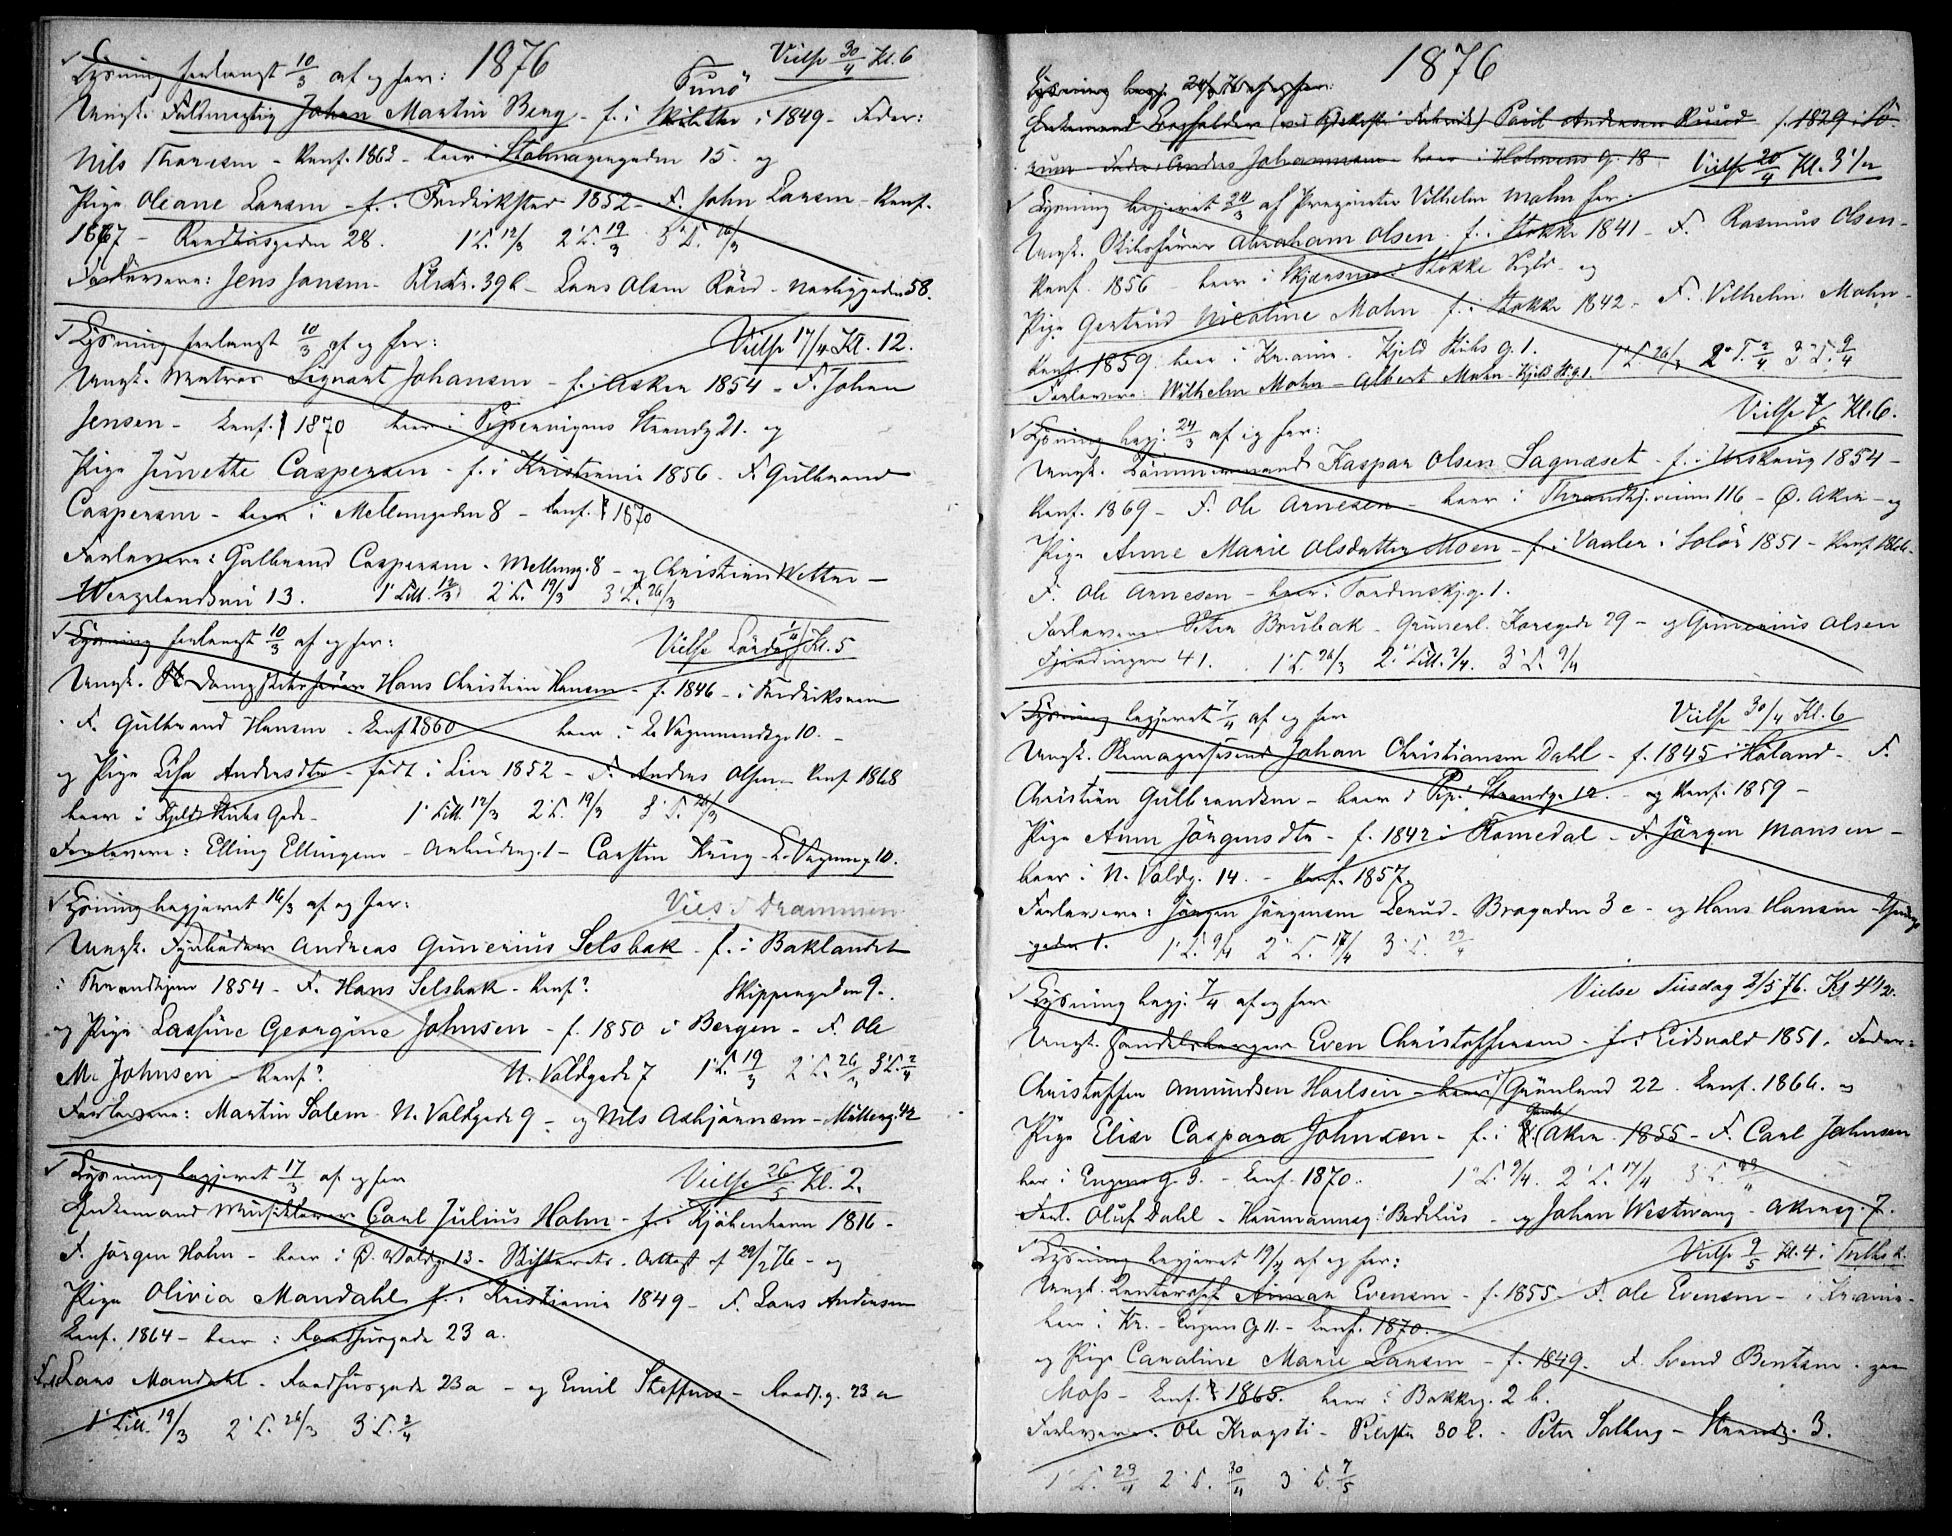 1876
Lysning forlangt 10/3 af og her: Vielse 30/4 Kl. 6
Ungk. Fuldmægtig Johan Martin Berg - f. i 1849 - Fader:
Nils Thoresen - Konf. 1863 - boer i 15. og
Pige Oleane Larsen - f. i Fredrikstad 1852 - F. John Larsen - Konf.
1867 - Raadhusgaden 28. 1' L. 12/3 2' L. 19/3 3' L. 26/3
Forlovere: Jens Jansen - Pilestr. 39b - Lars Olsen Röed - 58.
Lysning forlangt 10/3 af og her: Vielse 17/4 Kl. 12.
Ungk. Matros Johansen - f. i Asker 1854 - F. Johan
Jensen - Konf. 1870 boer i Pipervigens Strandg 21. og
Pige Junette Caspersen - f. i Kristiania 1856. F. Gulbrand
Caspersen - boer i Mellemgaden 8 - Konf. 1870
Forlovere: Gulbrand Caspersen - Mellemg. 8 - og Christian Wetter -
13. 1' Till. 12/3 2' L. 19/3 3' L. 26/3
Lysning forlangt 10/3 af og her: Vielse Lördag 1/4 Kl. 5
Ungk. Dampskibsförer Hans Christian Hansen - f. 1846 - i Fredriksværn
- F. Gulbrand Hansen - Konf 1860 boer i L. Vognmandsg 10. -
og Pige Lisa Andersdtr - födt i Lier 1852 - F. Anders Olsen - Konf 1868
boer i Kjeld Stubs Gade - 1' Till. 12/3 2' L. 19/3 3' L. 26/3
Forlovere: Elling Ellingsen - Arbeiderg. 1 - Carsten Krüg - L. Vognmg 10.
Lysning begjæret 16/3 af og her: Vies i Drammen
Ungk. Fyrböder Andreas Gunerius Selsbak - f. i Baklandet
i Throndhjem 1854 - F. Hans Selsbak - Konf? Skippergaden 9.
og Pige Lassine Georgine Johnsen - f. 1850 i Bergen - F. Ole
M. Johnsen - Konf? N. Voldgade 7 1' L. 19/3 2' L. 26/3 3' L. 2/4
Forlovere: Martin Solem - N. Voldgade 9 - og Nils Asbjörnsen - Mölleg. 42
Lysning begjæret 17/3 af og her Vielse 26/5 Kl. 2.
Enkemand Musiklærer Carl Julius Holm - f. i Kjöbenhavn 1816 -
F. Jörgen Holm - boer i Ö. Voldg. 13 - Skifterets Attest af 29/2 76 - og
Pige Olivia Mandahl f. i Kristiania 1849 - F. Lars Andersen
Konf. 1864 - boer i Raadhusgade 23 a.
Lars Mandahl - Raadhusgade 23a - og Emil Steffens - Raadh.g. 23 a
1' Till. 19/3 2' L. 26/3 3' L. 2/4
1876
Lysning begj. 24/3 76 af og her:
Enkemand Paul Andersen Ruud f. 1829 i
Fader: Anders Johannesen boer i Holmens G. 18 Vielse 20/4 Kl. 3 1/2
Lysning begjæret 24/3 af Vilhelm Mohn her.
Ungk. Skibsförer Abraham Olsen f. i Stokke 1841 - F. Rasmus Olsen -
Konf. 1856 - boer i i Stokke Sogn - og
Pige Gertrud Nicoline Mohn f. i Stokke 1842 - F. Vilhelm Mohn -
Konf 1859 boer i Kr.ania. Kjeld Stubs G. 1. 1' L. 26/3 2' T. 2/4 3' L. 9/4
Forlovere: Wilhelm Mohn - Albert Mohn - Kjeld St.g. 1.
Vielse 7/5 Kl. 6.
Lysning begj. 24/3 af og her:
Ungk. Tömmermand Kaspar Olsen Sagnæset - f. i Urskoug 1854 -
Konf. 1869 - F. Ole Arnesen - boer i Throndhj.veien 116 - Ö. Aker - og
Pige Anne Marie Olsdatter Moen - f. i Vaaler i Solör 1851 - Konf 1866 -
F. Ole Arnesen - boer i Tordenskj.g. 1.
Forlovere Peter Brubak - Grünerl. Korsgade 29 - og Gunerius Olsen
Fjerdingen 41. 1' L. 26/3 2' Till. 2/4. 3' L. 9/4
Lysning begjæret 7/4 af og her Vielse 30/4 Kl. 6
Ungk. Skomagersvend Johan Christiansen Dahl - f. 1845 i Höland - F.
Christian Gulbrandsen - boer i Pip. Strandg. 12. - og Konf. 1859 -
Pige Anne Jörgensdtr - f. 1842 i Romedal - F. Jörgen Monsen -
boer i N. Voldg. 14 - Konf. 1857.
Forlovere: Jörgen Jörgensen Lerud - Brogaden 3 c - og Hans Hansen -
gaden 1. 1' L. 9/4 2' L. 17/4 3' L. 23/4
Lysning begj. 7/4 af og her Vielse Tirsdag 2/5 76. Kl 4 1/2.
Ungk. Handelsborger Even Christoffersen - f. i Eidsvold 1851. Fader:
Christoffer Amundsen Hoelsen - boer i Grönland 22. Konf. 1866. og
Pige Elise Caspara Johnsen - f. i Gamle Aker 1855 - F. Carl Johnsen
boer i Enger G. 3. - Konf. 1870. 1' L. 9/4. 2' L. 17/4 3' L. 23/4
Forl. Oluf Dahl - Haumannsg. Bedehus - og Johan Westvang - Akersg. 7.
Lysning begjæret 19/4 af og her: Vielse 9/5 Kl. 4 i
Ungk. Kontorist Evensen - f. 1855 - F. Ole Evensen - i Kr.ania -
boer i Kr. - G. 11. - Konf. 1870.
og Pige Caroline Marie Larsen - f. 1849. F. Svend Bentsen -
Moss - Konf. 1865. boer i Bakkeg. 2 b.
Forlovere: Ole Krogsti - Pilestr 30 b. - Peter Solberg - Strandg. 3.
1' L. 23/4 2' L. 30/4 3' L. 7/5